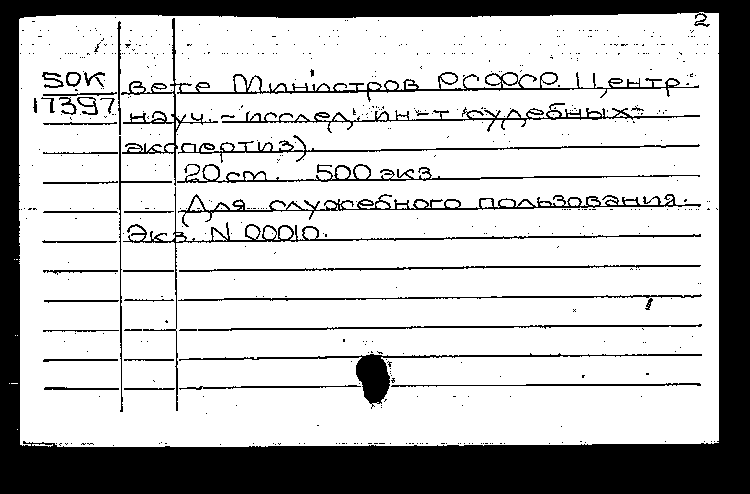 2
SOK вете Министров РСФСР. Центр.
17397 науч.-исслед. ин-т судебных
экспертиз).
20 cm. 500 экз.
Для служебного пользования.
Экз. N 00010.